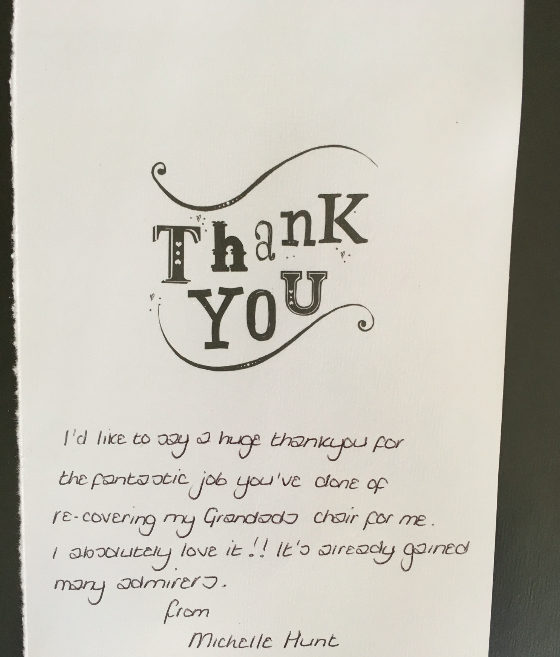 Thank
You
I'd like to say a huge thankyou for
the fantastic job you've done of
re-covering my Grandads chair for me.
I absolutely love it!! It's already gained
many admirers.
from
Michelle Hunt